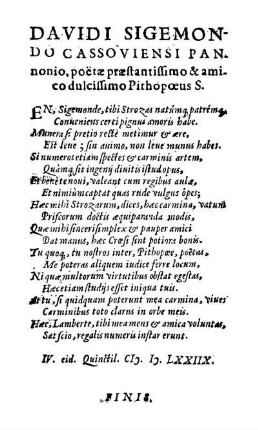 DAVIDI SIGEMON-
DO CASSOVIENSI PAN-
nonio, poëtæ præstantissimo & ami-
co dulcissimo Pithopœus S.
EN, Sigemonde, tibi Strozas natúmq, patrémq,
Conueniens certi pignus amoris habe.
Munera si pretio rectè metimur & ære,
Est leue; sin animo, non leue munus habes.
Si numeros etiam spectes & carminis artem,
Quàmq, sit ingenij diuitis istud opus,
tenoui, valeant cum regibus aulæ,
Et nimium captat quas rude vulgus opes;
Hæc mihi Strozarum, dices, hæc carmina, vatum
Priscorum doctis æquiparanda modis,
Quæ mihi sinceri simplex & pauper amici
Dat manus, hæc Crœsi sint potiora bonis.
Tu quoq, tu nostros inter, Pithopœe, poëtas,
Me poteras aliquem iudice ferre locum,
Ni quæ multorum virtutibus obstat egestas,
Hæc etiam studijs esset iniqua tuis.
At tu, si quidquam poterunt mea carmina, viues
Carminibus toto clarus in orbe meis.
Hæc, Lamberte, tibi mea mens & amica voluntas,
Sat scio, regalis muneris instar erunt.
IV. eid. Quinctil. CIↃ. IↃ. LXXIIX.
FINIS.